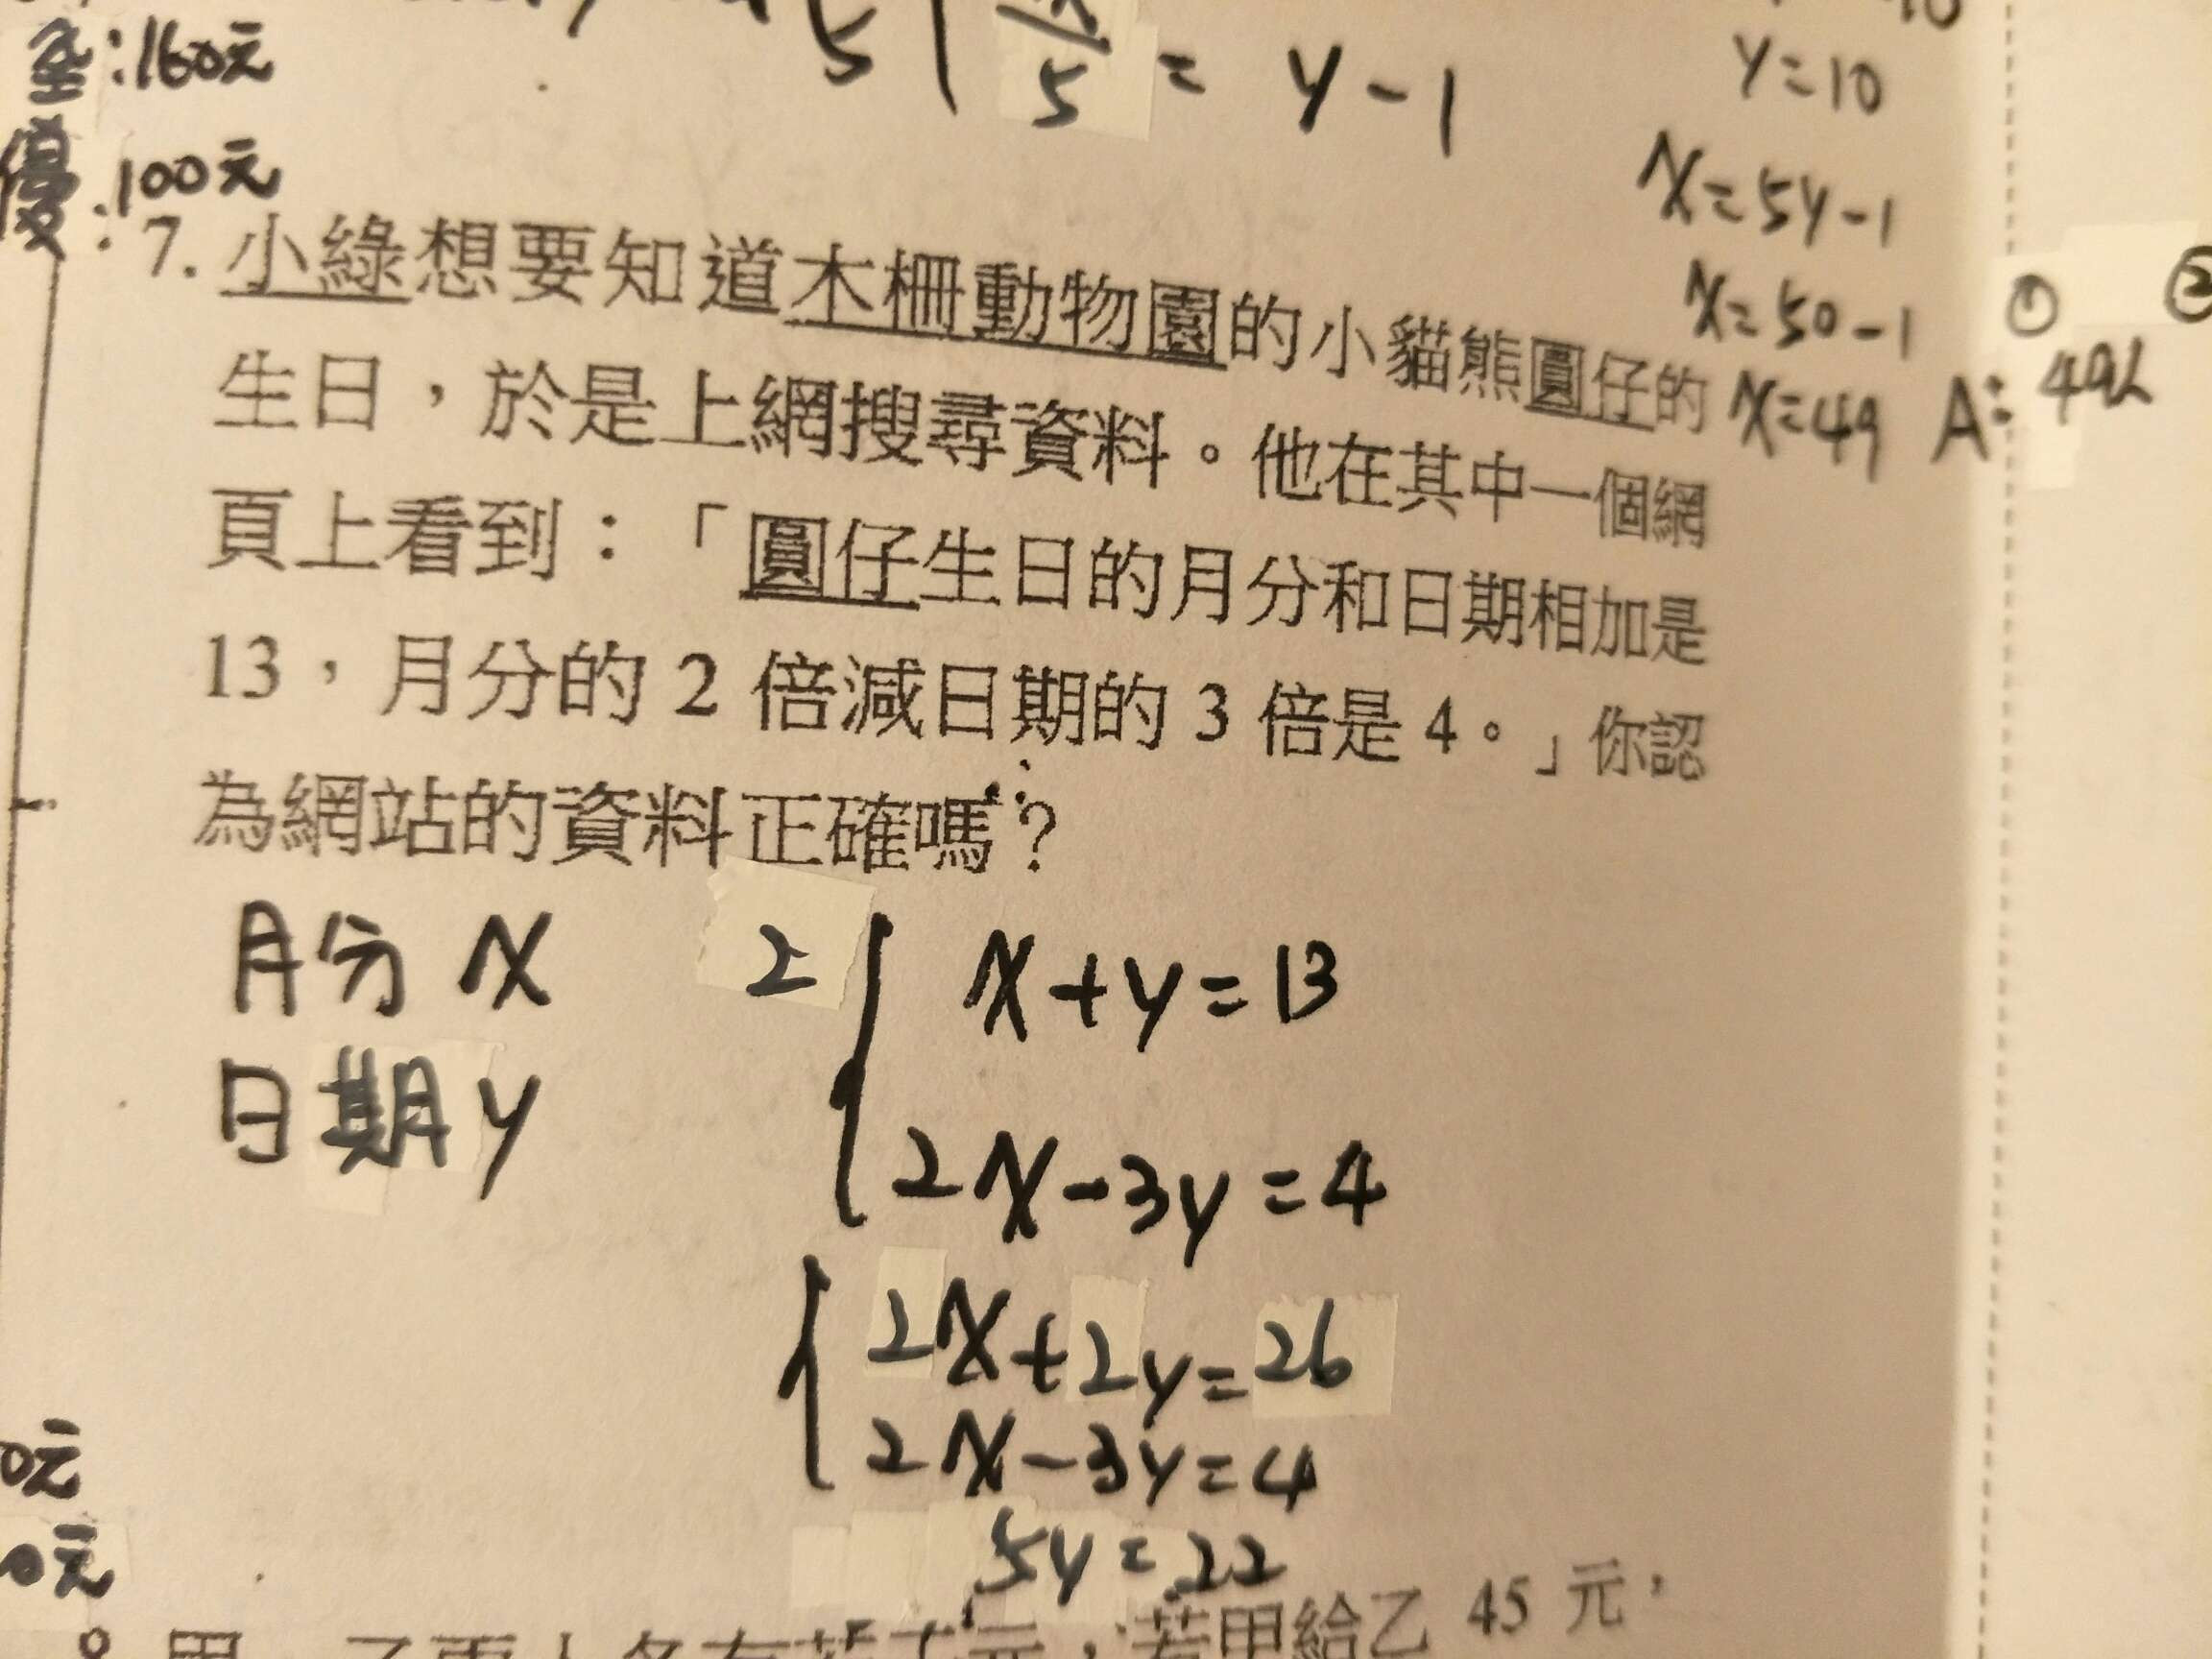 全:160元
優:100元
5
5 = y-1
y=10
x=5y-1
x=50-1
x=49 A:49L
① ②
7. 小綠想要知道木柵動物園的小貓熊圓仔的
生日,於是上網搜尋資料。他在其中一個網
頁上看到:「圓仔生日的月分和日期相加是
13,月分的 2 倍減日期的 3 倍是 4。」你認
為網站的資料正確嗎?
月分 x
日期 y
2 { x+y=13
2x-3y=4
{ 2x+2y=26
2x-3y=4
5y=22
0元
0元
若甲給乙 45 元,